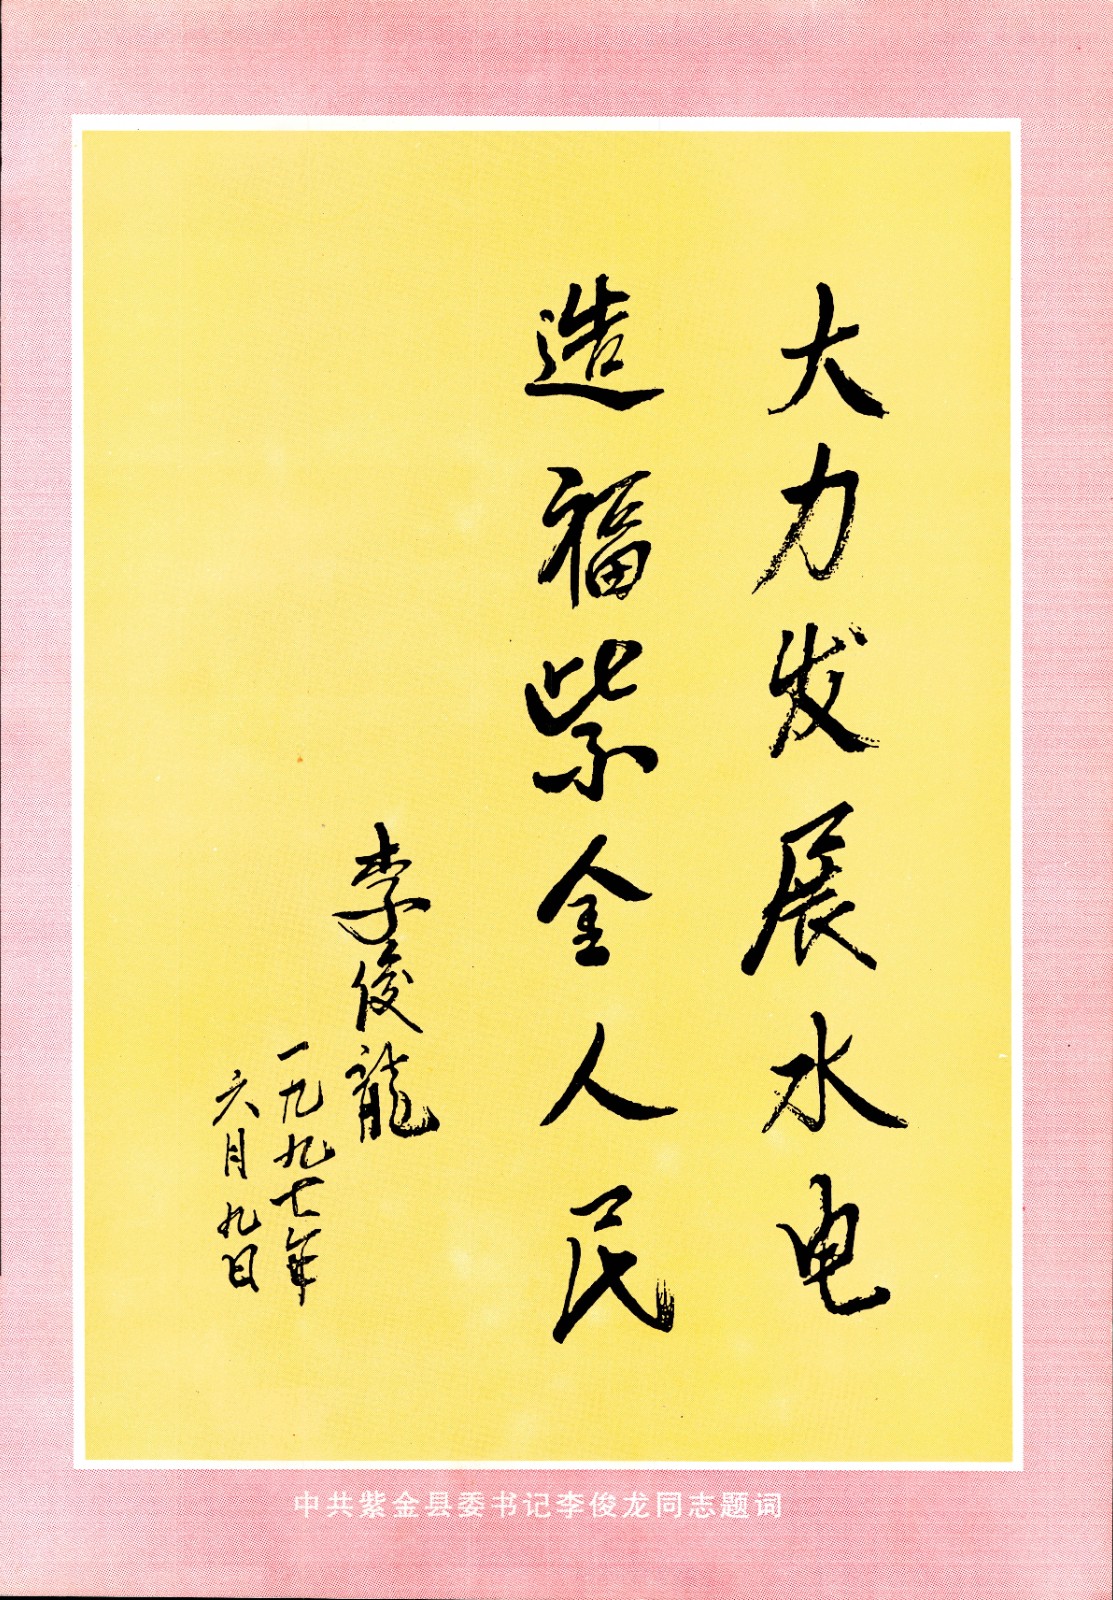 大力发展水电
造福紫金人民
李俊龍
一九九七年
六月九日
中共紫金县委书记李俊龙同志题词